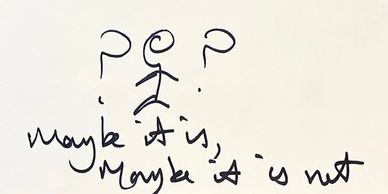 ? ?
Maybe it is,
Maybe it is not